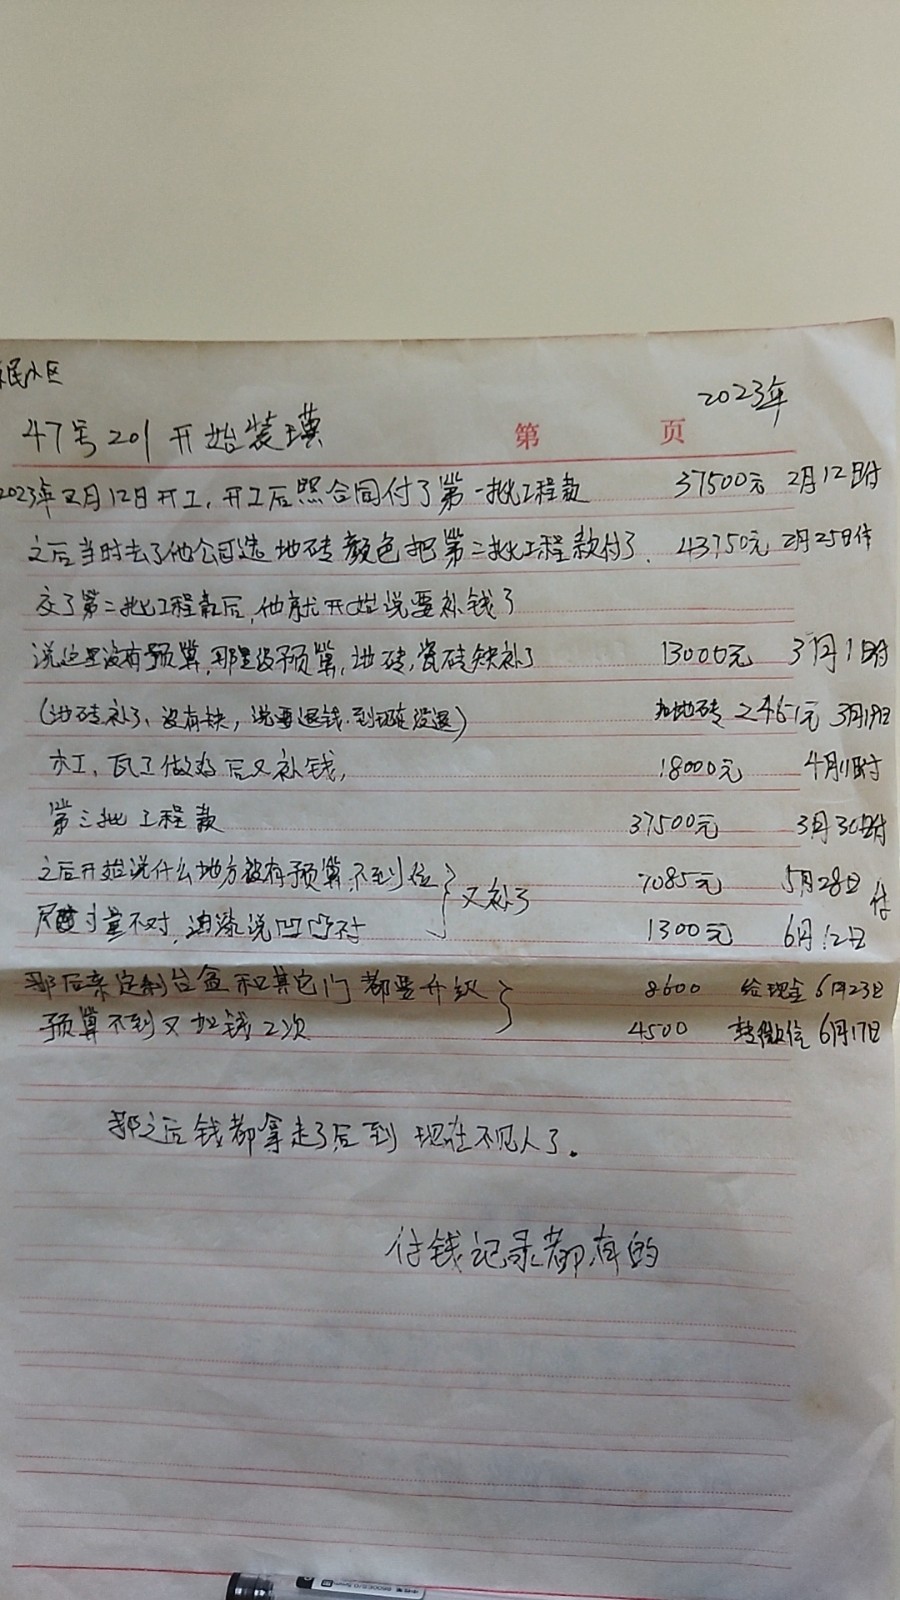 民小区
2023年
47号201开始装璜
第 页
2023年2月12日开工,开工后照合同付了第一批工程款 37500元 2月12日付
之后当时去了他公司选地砖颜色把第二批工程款付了. 43750元 2月25日付
交了第二批工程款后,他就开始说要补钱了
说这里没有预算,那里没预算,地砖,瓷砖缺补了 13000元 3月1日付
(地砖补了、没有缺,说要退钱.到现在没退) 加地砖 2461元 3月19日
木工、瓦工做好后又补钱, 18000元 4月11日付
第三批工程款 37500元 3月30日付
之后开始说什么地方没有预算,不到位 又补了 7085元 5月28日 付
尺寸量不对,油漆说凹凸不 1300元 6月12日
那后来定制台盆和其它门都要升级 8600 给现金 6月23日
预算不到又加钱2次 4500 转微信 6月17日
那之后钱都拿走了后到现在不见人了.
付钱记录都有的